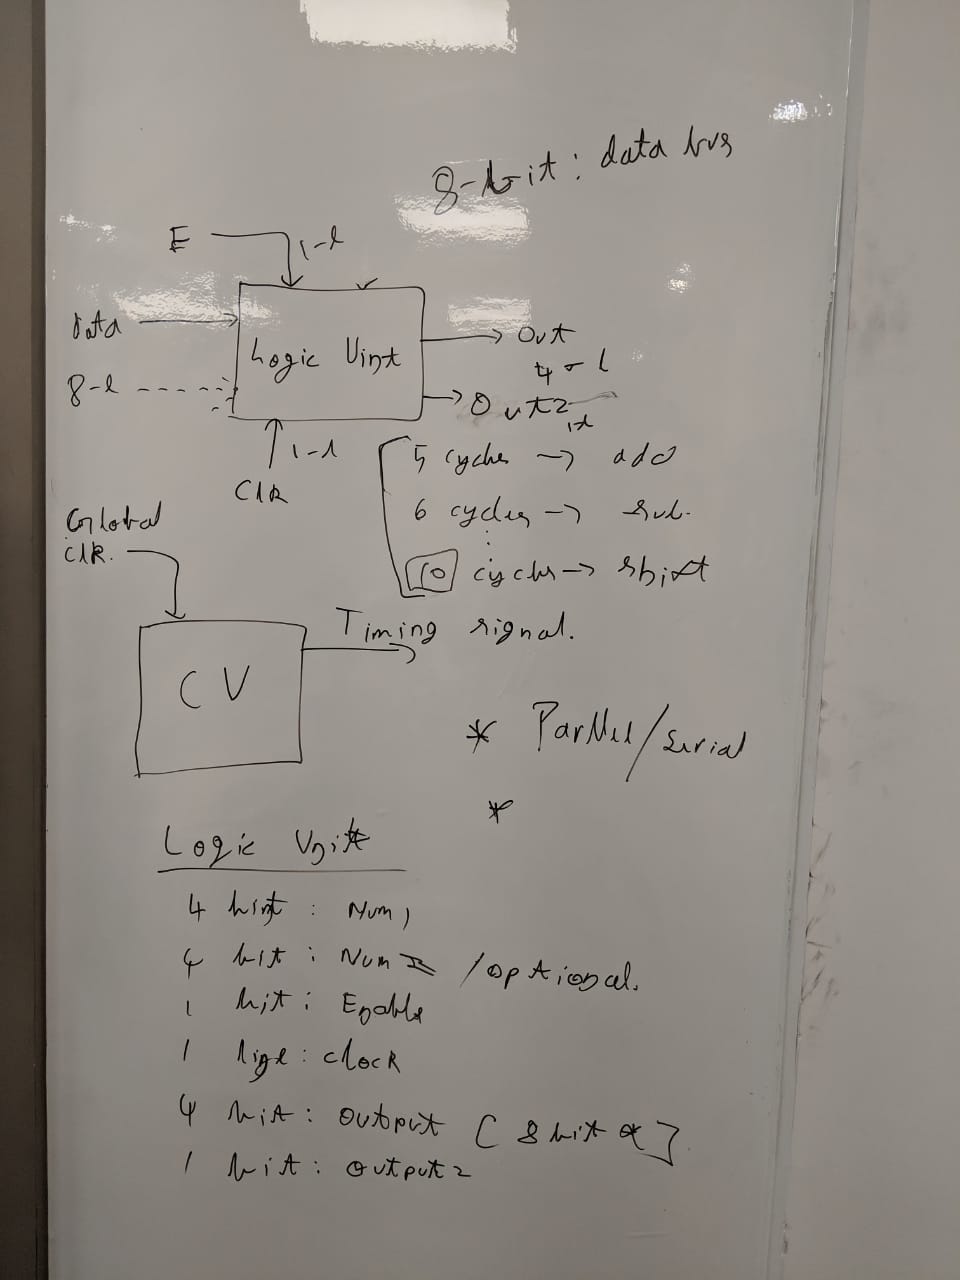 8-bit: data bus
E
1-l
data
Logic Uint
Out
4-l
8-l
Out2
1-l
Clk
5 cycles → add
6 cycles → sub.
10 cycles → shift
Global
clk.
Timing signal.
CU
* Parallel/serial
*
Logic Unit
4 bit: Num1
4 bit: Num2 /optional.
1 bit: Enable
1 line: clock
4 bit: output [8 bit *]
1 bit: output2